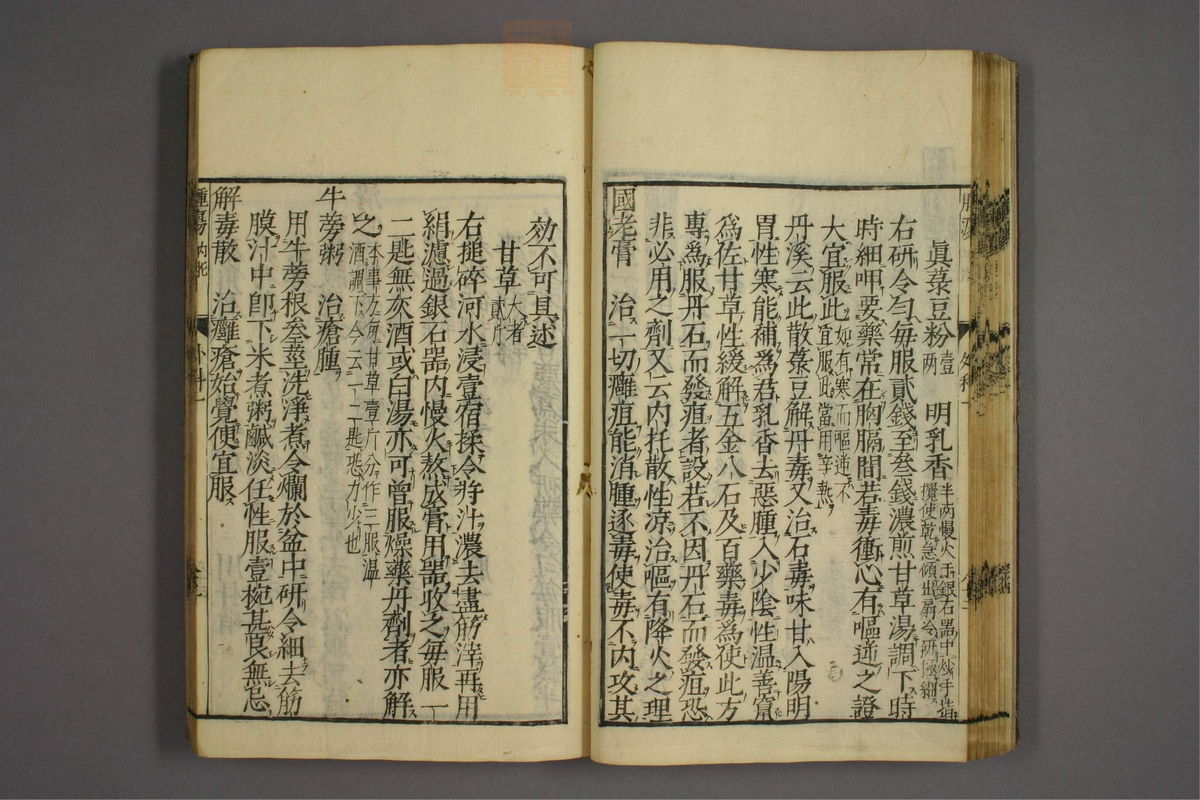 眞菉豆粉 壹兩 明乳香 半兩慢火于銀石器中炒手指攪使乾急傾出扇冷研極細
右研令勻每服貳錢至叁錢濃煎甘草湯調下時
時細呷要藥常在胸膈間若毒衝心有嘔逆之證
大宜服此 如有寒而嘔逆不宜服此當用辛熱
丹溪云此散菉豆解丹毒又治石毒味甘入陽明
胃性寒能補為君乳香去惡腫入少陰性温善竄
為佐甘草性緩解五金八石及百藥毒為使此方
專為服丹石而發疽者設若不因丹石而發疽恐
非必用之劑又云內托散性凉治嘔有降火之理
國老膏 治一切癰疽能消腫逐毒使毒不內攻其
効不可具述
甘草 大者貳斤
右搥碎河水浸壹宿揉令將汁濃去盡筋滓再用
絹濾過銀石器內慢火熬成膏用器收之每服一
二匙無灰酒或白湯亦可曾服燥藥丹劑者亦解
之 本事方每甘草壹斤分作三服温酒調下今云一二匙恐力少也
牛蒡粥 治瘡腫
用牛蒡根叁莖洗淨煮令爛於盆中研令細去筋
膜汁中卽下米煮粥鹹淡任性服壹椀甚良無忌
解毒散 治癰瘡始覺便宜服
腫瘍 內托 外科一